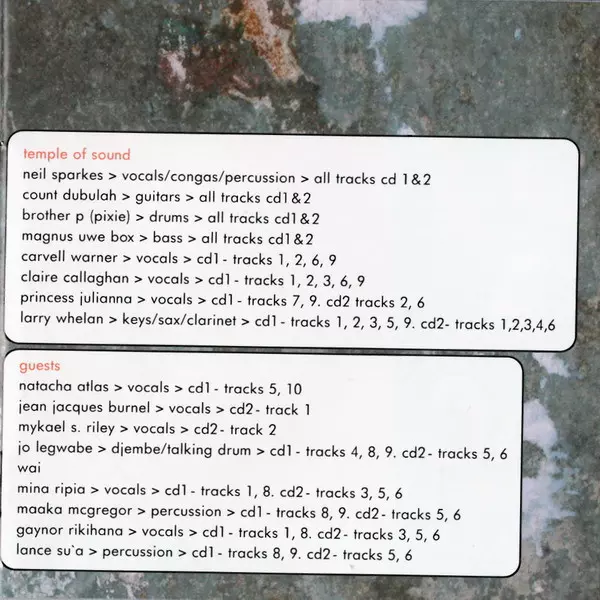 temple of sound
neil sparkes > vocals/congas/percussion > all tracks cd 1&2
count dubulah > guitars > all tracks cd1&2
brother p (pixie) > drums > all tracks cd1&2
magnus uwe box > bass > all tracks cd1&2
carvell warner > vocals > cd1- tracks 1, 2, 6, 9
claire callaghan > vocals > cd1- tracks 1, 2, 3, 6, 9
princess julianna > vocals > cd1- tracks 7, 9. cd2 tracks 2, 6
larry whelan > keys/sax/clarinet > cd1- tracks 1, 2, 3, 5, 9. cd2- tracks 1,2,3,4,6
guests
natacha atlas > vocals > cd1- tracks 5, 10
jean jacques burnel > vocals > cd2- track 1
mykael s. riley > vocals > cd2- track 2
jo legwabe > djembe/talking drum > cd1- tracks 4, 8, 9. cd2- tracks 5, 6
wai
mina ripia > vocals > cd1- tracks 1, 8. cd2- tracks 3, 5, 6
maaka mcgregor > percussion > cd1- tracks 8, 9. cd2- tracks 5, 6
gaynor rikihana > vocals > cd1- tracks 1, 8. cd2- tracks 3, 5, 6
lance su`a > percussion > cd1- tracks 8, 9. cd2- tracks 5, 6